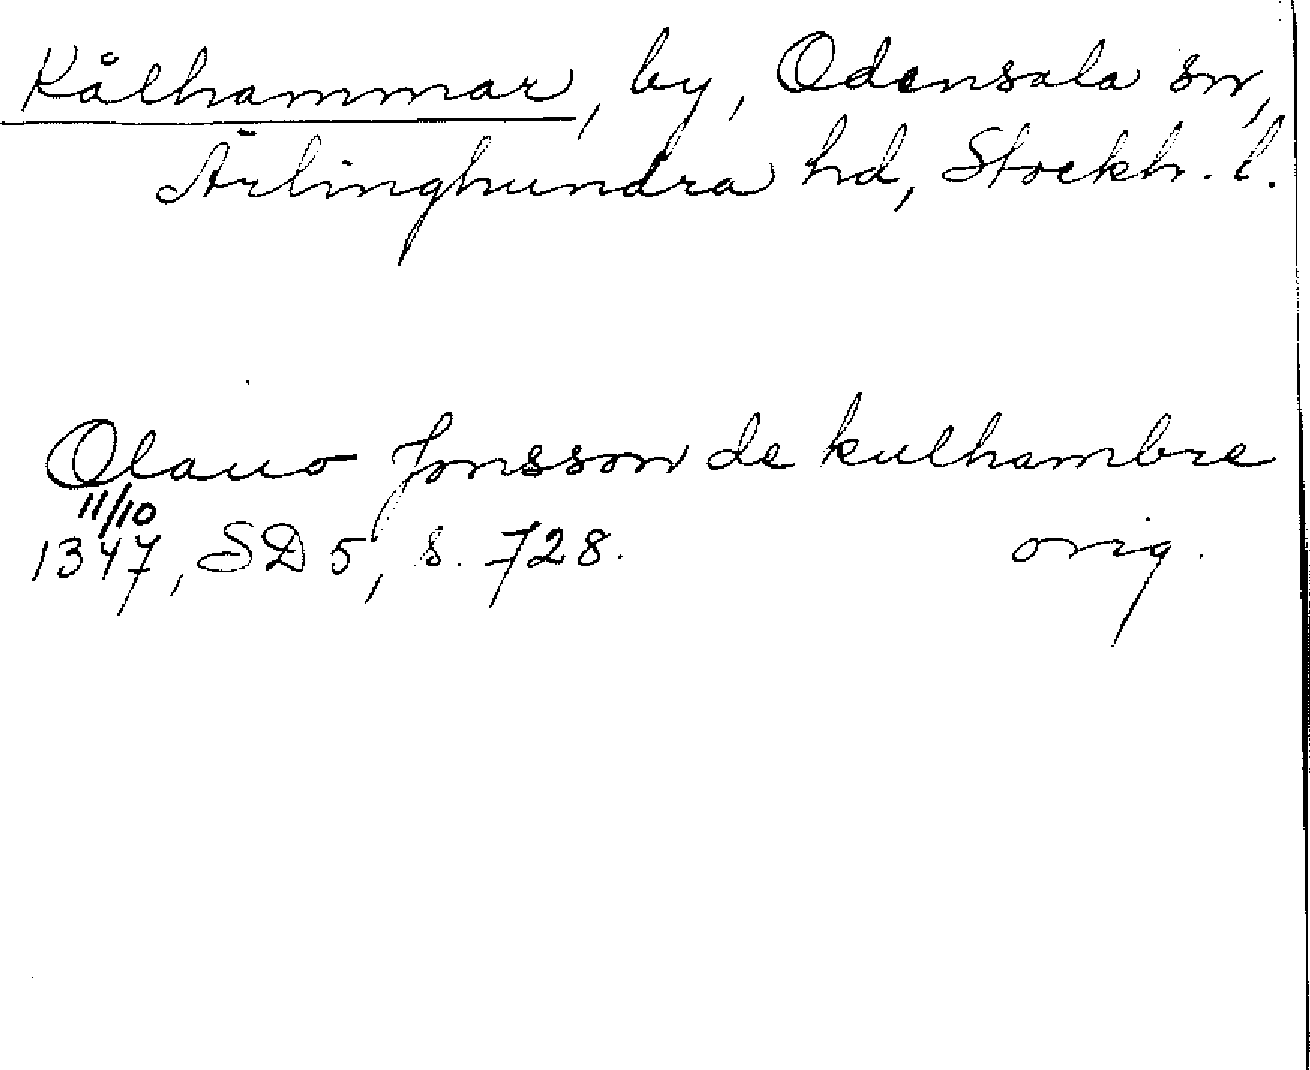 Kålhammar, by, Odensala sn,
Ärlinghundra hd, Stockh. l.
Olauo Jonsson de kulhambre
11/10
1347, SD 5, s. 728. orig.